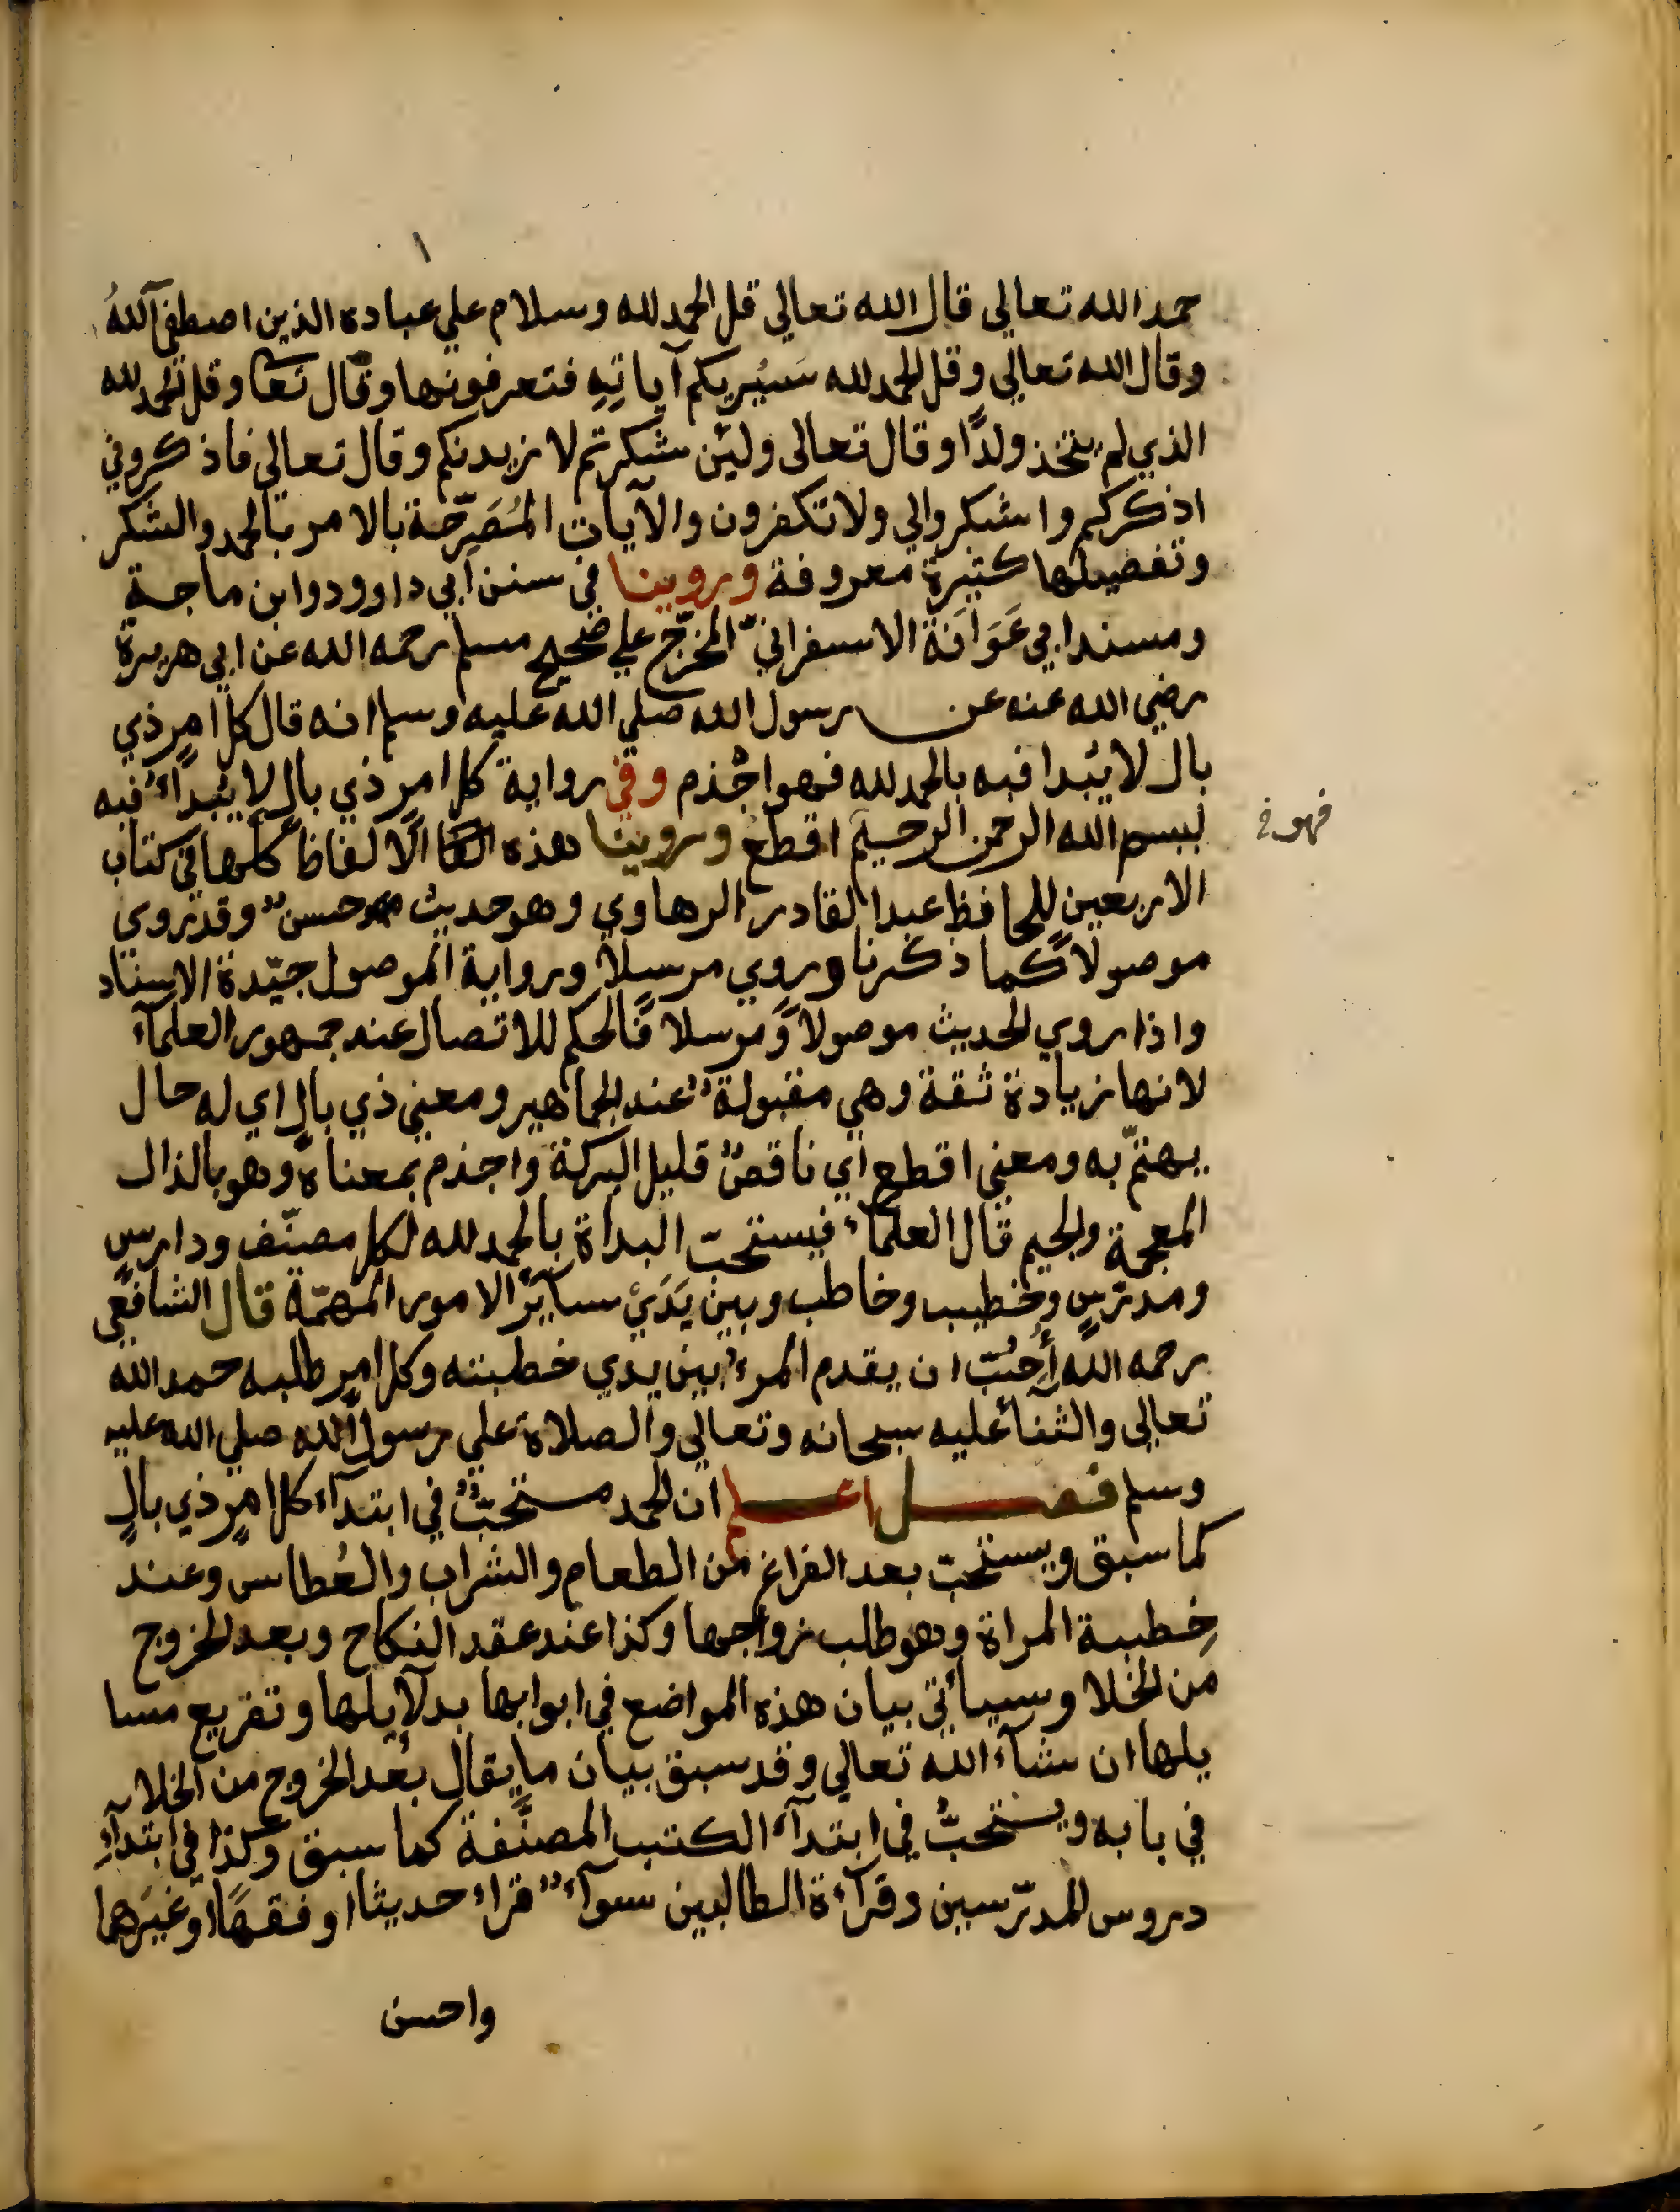 حمد الله تعالى قال الله تعالى قل الحمد لله وسلام علي عباده الذين اصطفى آلله
وقال الله تعالى وقل الحمد لله سَيُريكم آياتِهِ فتعرفونها وقال تعا وقل الحمد لله
الذي لم يتخذ ولدًا وقال تعالى ولئن شكرتم لازيدنكم وقال تعالى فاذكروني
اذكركم واشكروالي ولا تكفرون والآيات المُصَرِّحة بالامر بالحمد والشكر
وتفضيلها كثيرة معروفة وروينا في سنن ابي داوود وابن ماجة
ومسند ابي عَوَانَة الاسفراني المخرّج علي صحيح مسلم رحمه الله عن ابي هريرة
رضي الله عنه عن رسول الله صلي الله عليه وسلم انه قال كل امرٍ ذي
بال لا يُبدا فيه بالحمد لله فهو اجْذم وفي رواية كل امر ذي بالٍ لا يُبدأء فيه
ببسم الله الرحمن الرحيم اقطع وروينا هذه الالفاظ كلها في كتاب
فهو خ
الاربعين للحافظ عبد القادر الرهاوي وهو حديث حسنٌ وقد روي
موصولاً كما ذكرنا وروي مرسلاً ورواية الموصول جيّدة الاسناد
واذا روي الحديث موصولاً ومرسلا فالحكم للاتصال عند جمهور العلمآء
لانها زيادة ثقة وهي مقبولةٌ عند الجماهير ومعني ذي بالٍ اي له حال
يهتمّ به ومعني اقطع اي ناقصٌ قليل البركة واجذم بمعناه وهو بالذال
المعجمة والجيم قال العلمآء فيستحبّ البداة بالحمد لله لكل مصنّف ودارسٍ
ومدرّسٍ وخطيب وخاطب وبين يَدَيْ سآئر الامور المهمّة قال الشافعي
رحمه الله أُحِبُّ ان يقدم المرء بين يدي خطبته وكل امرٍ طلبه حمد الله
تعالى والثنآ عليه سبحانه وتعالي والصلاة علي رسول الله صلي الله عليه
وسلم فصل اعلم ان الحمد مستحبٌّ في ابتدآء كل امرٍ ذي بالٍ
كما سبق ويستحبّ بعد الفراغ من الطعام والشراب والعُطاس وعند
خِطبة المراة وهو طلب زواجها وكذا عند عقد النكاح وبعد الخروج
من الخلا وسيأتي بيان هذه المواضع في ابوابها بدلآيلها وتفريع مسا
يلها ان شآء الله تعالي وقد سبق بيان ما يقال بعد الخروج من الخلاء
في بابه ويستحبُّ في ابتدآء الكتب المصنَّفة كما سبق وكذا في ابتدآءِ
دروس المدرّسين وقرآءة الطالبين سوآءٌ قراء حديثا او فقهًا او غيرَهما
واحسن